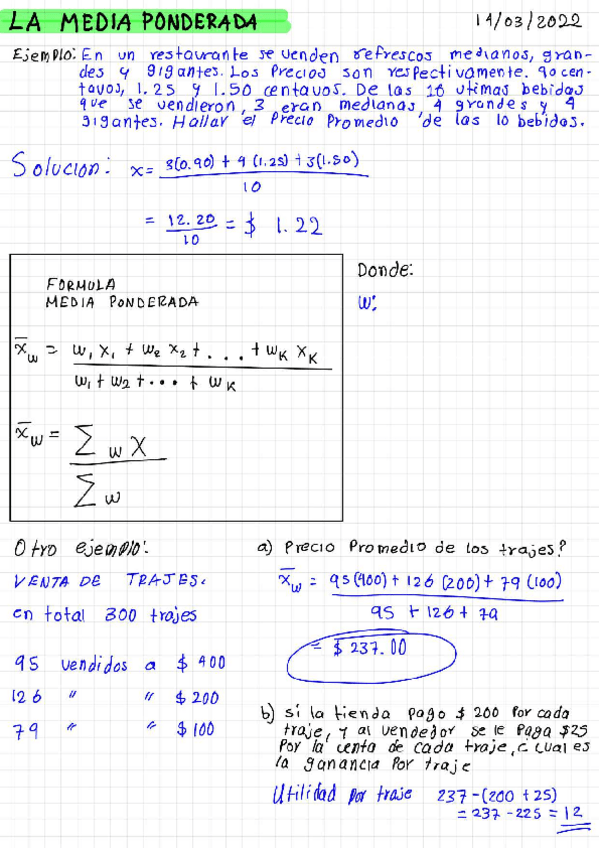 LA MEDIA PONDERADA 14/03/2022
Ejemplo: En un restaurante se venden refrescos medianos, gran-
des y gigantes. Los Precios son respectivamente. 90 cen-
tavos, 1.25 y 1.50 centavos. De las 10 utimas bebidas
que se vendieron, 3 eran medianas, 4 grandes y 4
gigantes. Hallar el Precio Promedio de las 10 bebidas.
Solucion: x = 3(0.90) + 4 (1.25) + 3(1.50)
10
= 12.20 = $ 1.22
10
FORMULA
MEDIA PONDERADA
x̄w = w1 x1 + w2 x2 + . . . + wK xK
w1 + w2 + ... + wK
x̄w = ∑ w X
∑ w
Donde:
w:
Otro ejemplo:
VENTA DE TRAJES.
en total 300 trajes
95 vendidos a $ 400
126 " " $ 200
79 " " $ 100
a) Precio Promedio de los trajes?
x̄w = 95(400) + 126 (200) + 79 (100)
95 + 126 + 79
= $ 237.00
b) si la tienda pago $ 200 Por cada
traje, y al vendedor se le Paga $25
Por la venta de cada traje, ¿ cual es
la ganancia Por traje
Utilidad por traje 237 - (200 + 25)
= 237 - 225 = 12